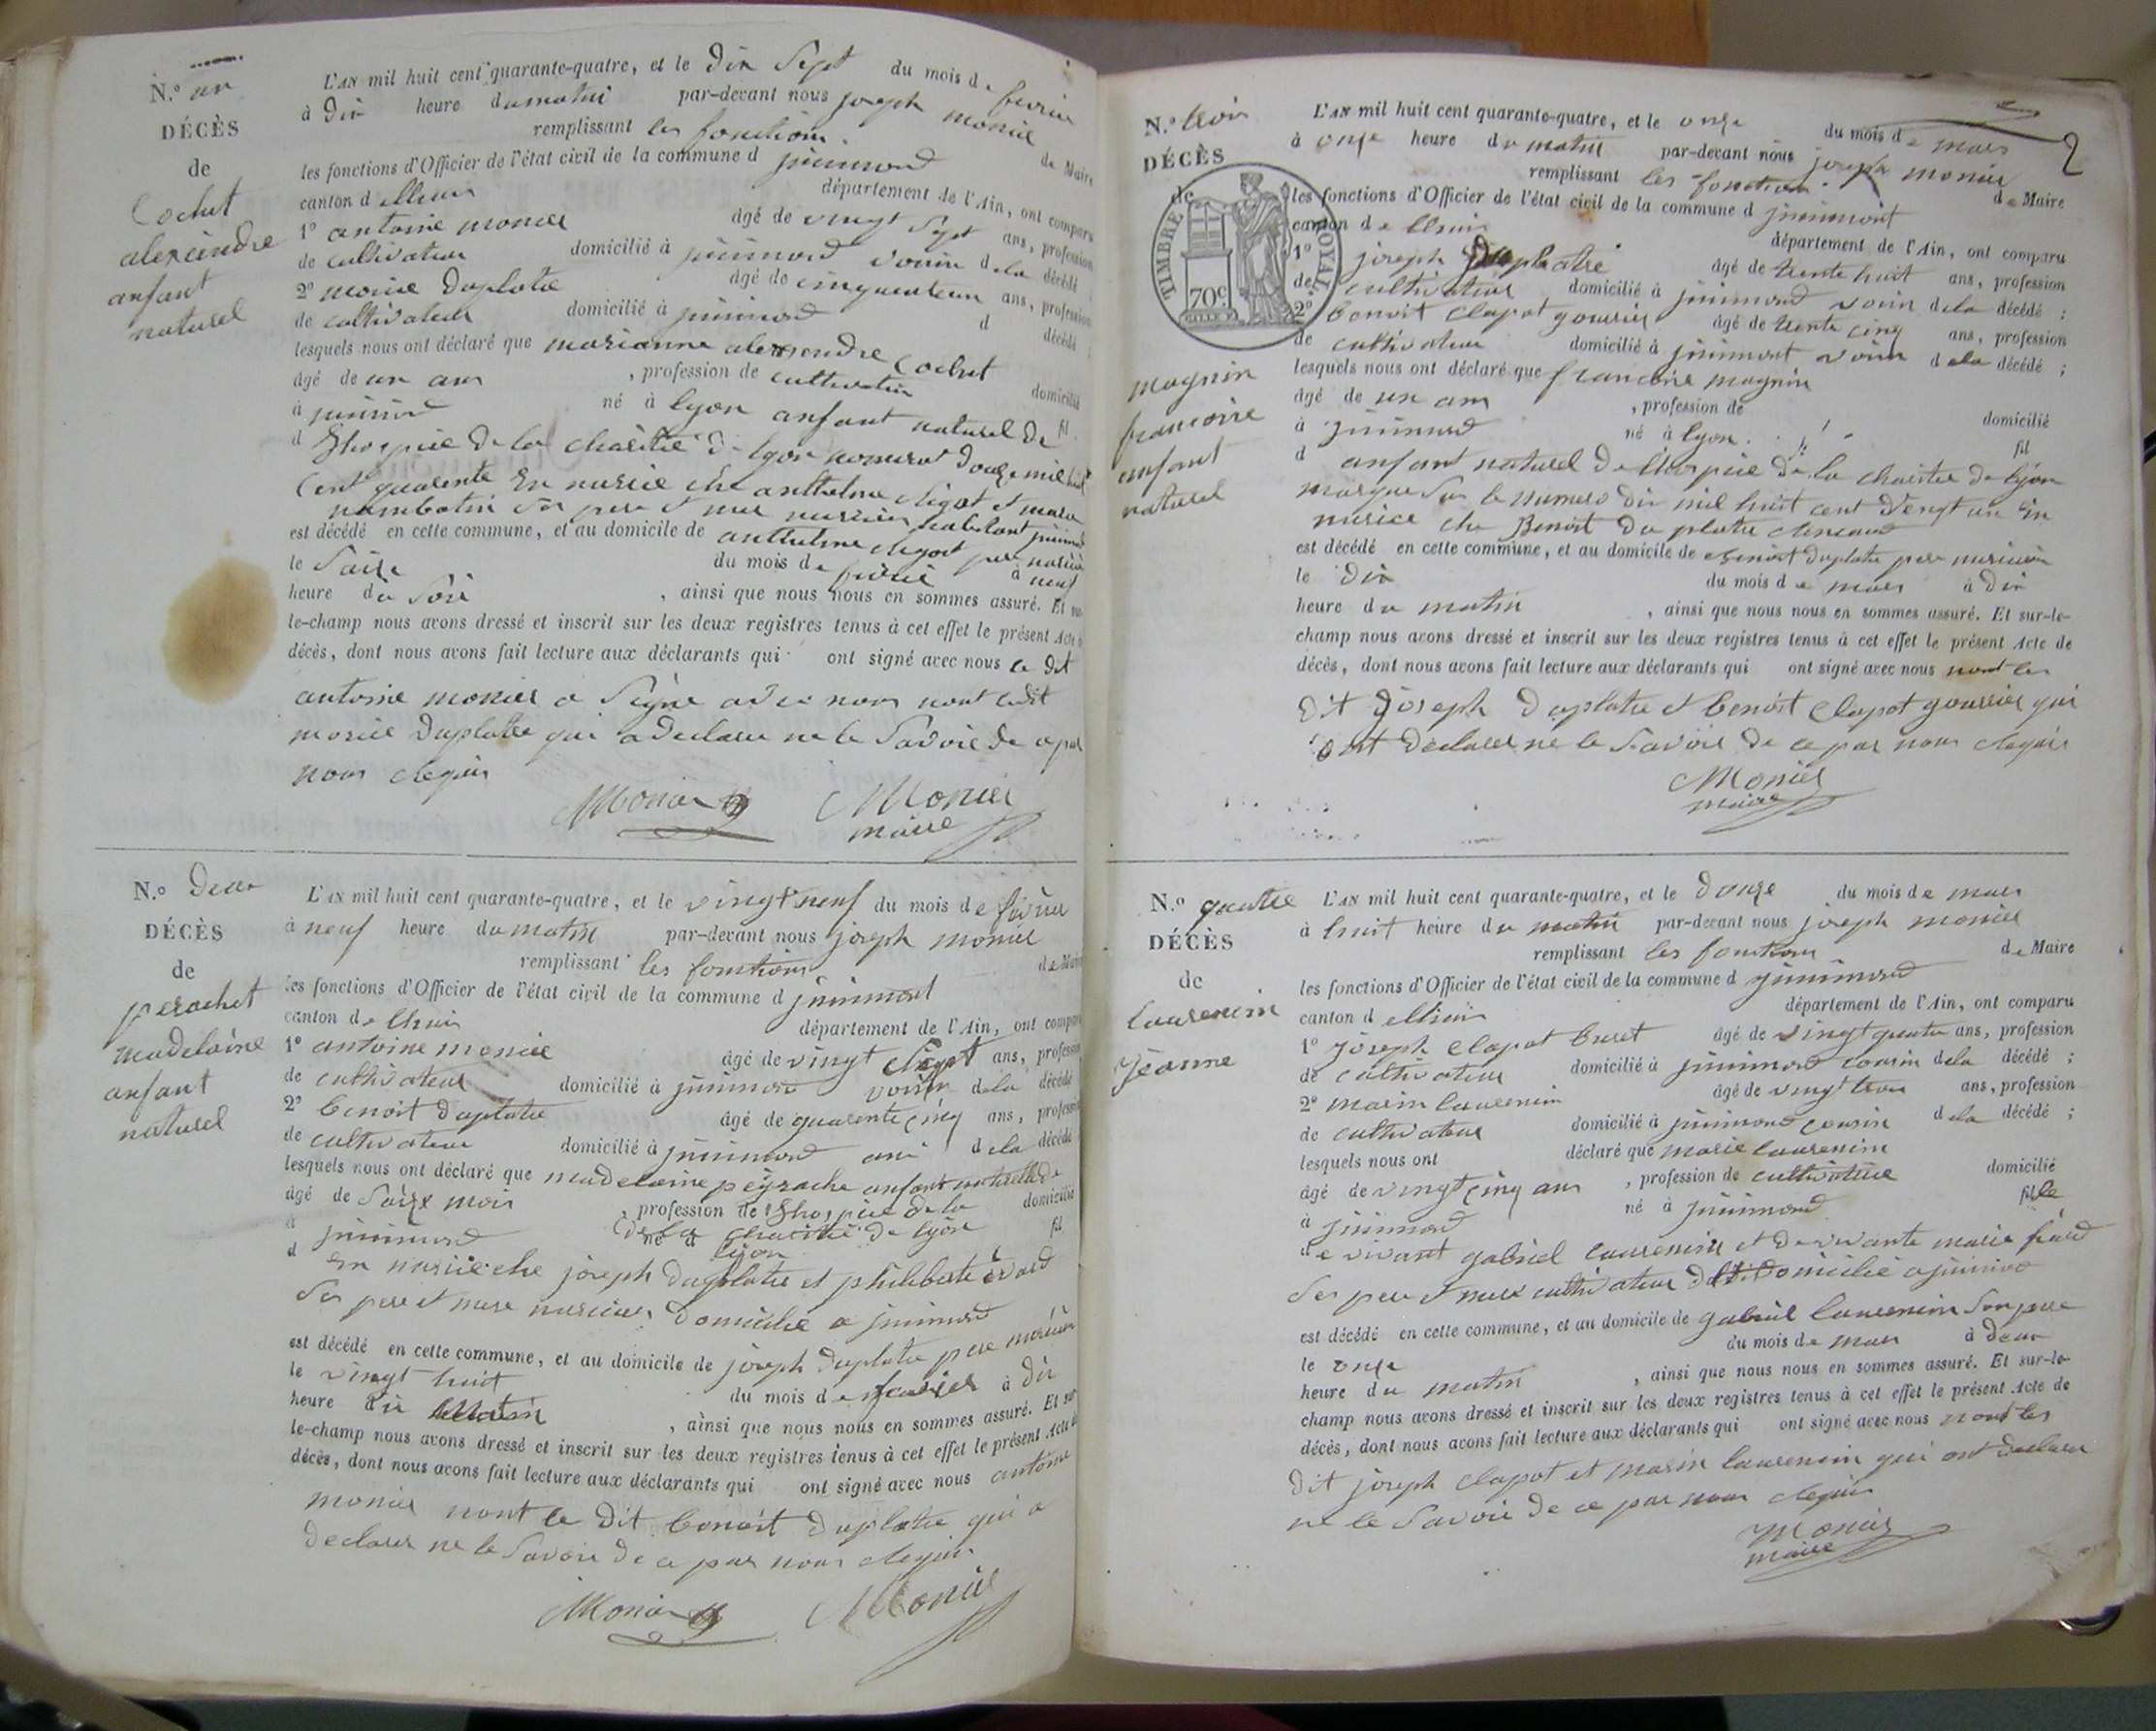 N.o un
DÉCÈS
de
Cochet
alexcindre
anfant
naturel
L'AN mil huit cent quarante-quatre, et le dix Sept du mois de fevrier
à dix heure du matin par-devant nous joseph monier
remplissant les fonction de Maire
les fonctions d'Officier de l'état civil de la commune d jujurieux
canton d
département de l'Ain, ont comparu
1o antoine monier âgé de vingt Sept ans, profession
de cultivateur domicilié à voisin de la décédé
2o morice Duplatre âgé de cinquante un ans, profession
de cultivateur domicilié à d décédé
lesquels nous ont déclaré que marianne alexsendre Cochet
âgé de un ans , profession de cultivatrice domicilié
à né à lyon anfant naturel de fil
d lhospice de la charitié de lyon numerot douze mil huit
Cent quarente En nurice che anthelme et marie
ses pere et mere nuricier habitant
est décédé en cette commune, et au domicile de anthelme pere nuricier
le Saize du mois de fevrier à neuf
heure du Soir , ainsi que nous nous en sommes assuré. Et sur
le-champ nous avons dressé et inscrit sur les deux registres tenus à cet effet le présent Acte de
décès, dont nous avons fait lecture aux déclarants qui ont signé avec nous le dit
antoine monier a Signe avec nous nont ledit
morice Duplatre qui a declarer ne le Savoir de ce par
nous
Monier Monier
maire
N.o deux
DÉCÈS
de
perachet
madelaine
anfant
naturel
L'AN mil huit cent quarante-quatre, et le vingt neuf du mois de fevrier
à neuf heure du matin par-devant nous joseph monier
remplissant les fonctions de Maire
les fonctions d'Officier de l'état civil de la commune d
canton de lhuis
département de l'Ain, ont comparu
1o antoine monier âgé de vingt Sept ans, profession
de cultivateur domicilié à voisin de la décédé
2o benoit duplatre âgé de quarente cinq ans, profession
de cultivateur domicilié à ami de la décédé
lesquels nous ont déclaré que madelaine peyrache anfant naturelle de
âgé de Saize mois , profession de lhospice de la domicilié
à né à charitié de lyon fil
lyon
d En nurice che joseph duplatre et philiberte
Ses pere et mere nuricier domicilie a
est décédé en cette commune, et au domicile de joseph duplatre pere nuricier
le vingt huit du mois de fevrier à dix
heure du matin , ainsi que nous nous en sommes assuré. Et sur
le-champ nous avons dressé et inscrit sur les deux registres tenus à cet effet le présent Acte de
décès, dont nous avons fait lecture aux déclarants qui ont signé avec nous antoine
monier nont le dit benoit duplatre qui a
declarer ne le Savoir de ce par nous
Monier Monier
2
N.o trois
DÉCÈS
de
TIMBRE ROYAL
70c
magnin
francoise
enfant
naturel
L'AN mil huit cent quarante-quatre, et le onze du mois de mars
à onze heure du matin par-devant nous joseph monier
remplissant les fonction de Maire
les fonctions d'Officier de l'état civil de la commune d
canton de lhuis
département de l'Ain, ont comparu
1o joseph duplatre âgé de trente huit ans, profession
de cultivateur domicilié à voisin de la décédé ;
2o benoit Clapot gourrier âgé de trente cinq ans, profession
de cultivateur domicilié à voisin de la décédé ;
lesquels nous ont déclaré que francoise magnin
âgé de un ans , profession de domicilié
à né à lyon fil
d anfant naturel de lhospice de la charitee de lyon
marque Sur le numero dix mil huit cent vingt un En
nurice che Benoit du platre
est décédé en cette commune, et au domicile de benoit duplatre pere nuricier
le dix du mois de mars à dix
heure du matin , ainsi que nous nous en sommes assuré. Et sur-le-
champ nous avons dressé et inscrit sur les deux registres tenus à cet effet le présent Acte de
décès, dont nous avons fait lecture aux déclarants qui ont signé avec nous nont les
dit joseph duplatre et benoit Clapot gourrier qui
ont declarer ne le Savoir de ce par nous
Monier
maire
N.o quatre
DÉCÈS
de
laurencin
jeanne
L'AN mil huit cent quarante-quatre, et le douze du mois de mars
à huit heure du matin par-devant nous joseph monier
remplissant les fonctions de Maire
les fonctions d'Officier de l'état civil de la commune d
canton d
département de l'Ain, ont comparu
1o joseph Clapot buret âgé de vingt quatre ans, profession
de cultivateur domicilié à cousin de la décédé ;
2o marin laurencin âgé de vingt trois ans, profession
de cultivateur domicilié à cousin de la décédé ;
lesquels nous ont déclaré que marie laurencin
âgé de vingt cinq ans , profession de cultivatrice domicilié
à né à fille
de vivant gabriel laurencin et de vivante marie
Ses pere et mere cultivateur domicilie a
est décédé en cette commune, et au domicile de gabriel laurencin Son pere
le onze du mois de mars à deux
heure du matin , ainsi que nous nous en sommes assuré. Et sur-le-
champ nous avons dressé et inscrit sur les deux registres tenus à cet effet le présent Acte de
décès, dont nous avons fait lecture aux déclarants qui ont signé avec nous nont les
dit joseph Clapot et marin laurencin qui ont declarer
ne le Savoir de ce par nous
Monier
maire